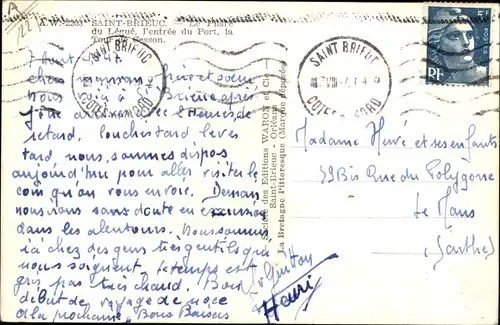 A. W. 2203 - SAINT-BRIEUC. - Le Phare
du Légué, l'entrée du Port, la
Tour de Cesson.
SAINT BRIEUC
COTES DU NORD
SAINT BRIEUC
COTES DU NORD
POSTES
RF
Société des Editions WARON et Cie
Saint-Brieuc - Orléans
La Bretagne Pittoresque (Marque déposée)
7 Août 47
chers maman et soeur
nous à St Brieuc après
heures de
retard, couchés tard levés
tard, nous sommes dispos
aujourd'hui pour aller visiter le
coin qu'on nous envoie. Demain
nous irons sans doute en
dans les alentours. Nous sommes
ici chez des gens très gentils qui
nous soignent. Le temps est
gris pas très chaud. Bon
début de voyage de noce
à la prochaine. Bons Baisers
Henri
Madame Hervé et ses enfants
59 Bis Rue du Polygone
Le Mans
(Sarthe)